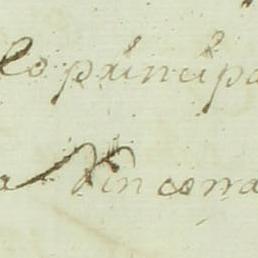 lo principa
a Rinconna